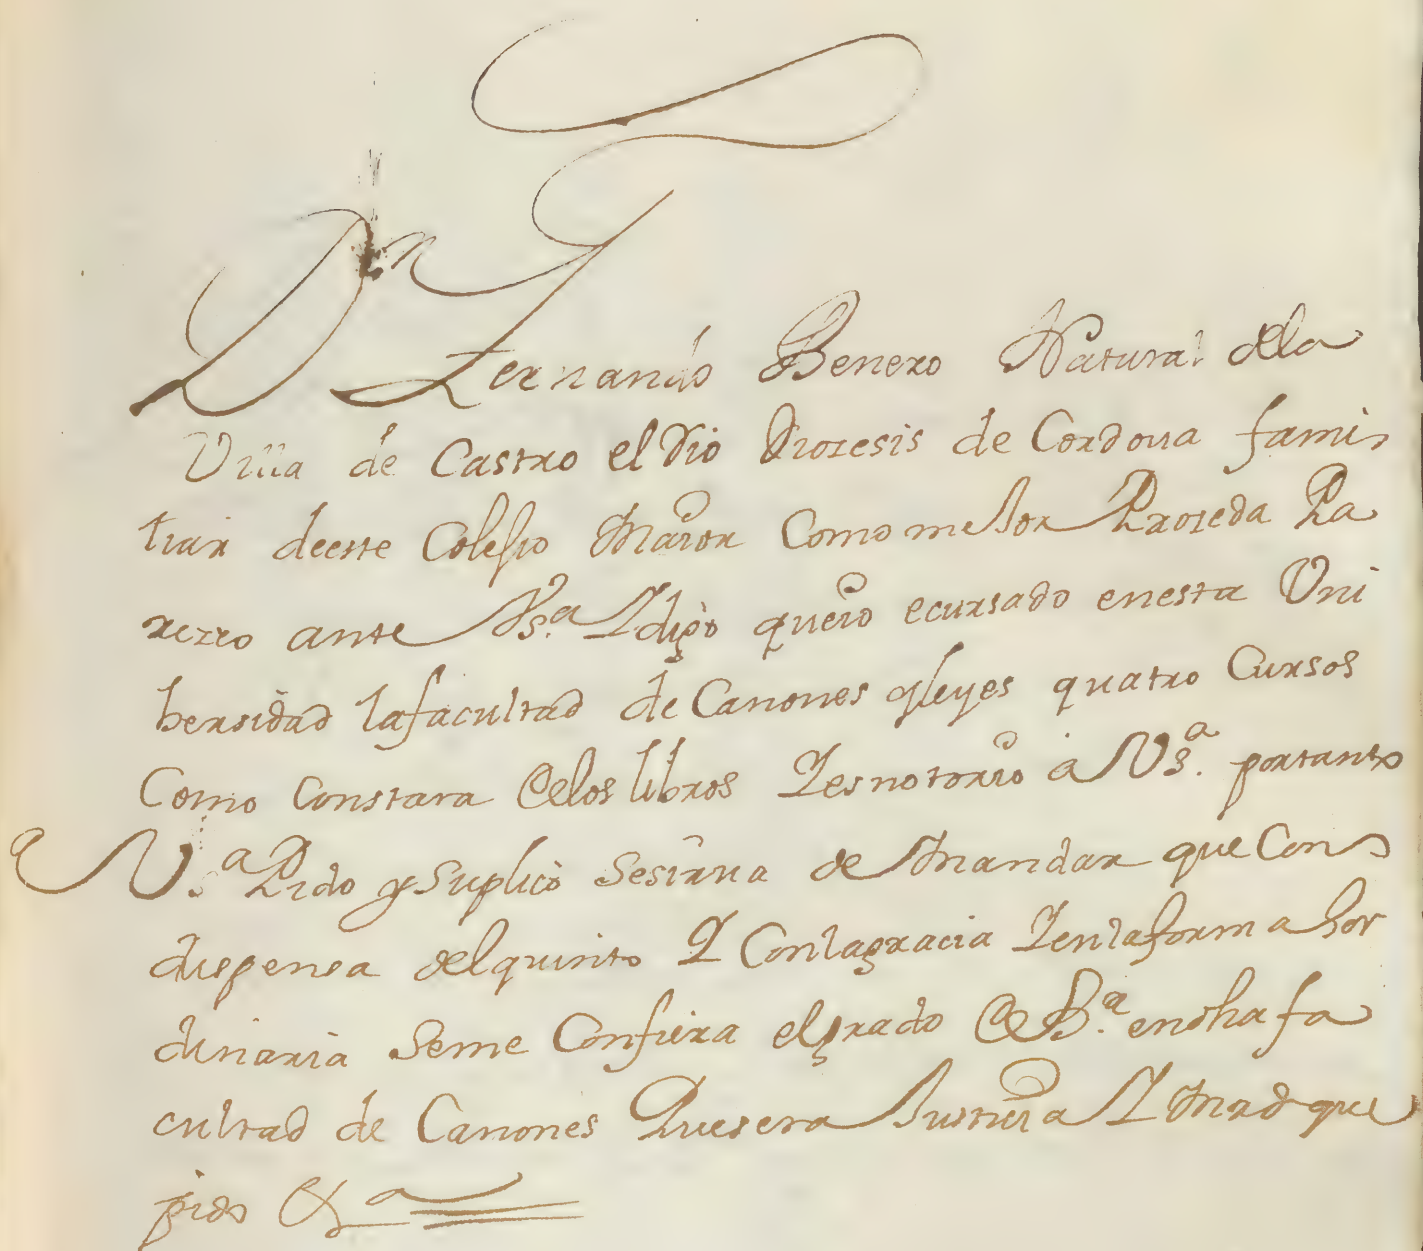 Dn Fernando Benero Natural dela
Villa de Castro el Rio Diozesis de Cordoua fami
liar deeste Colesio Maior Como mejor Prozeda Pa
rezco ante Vsª. Y digo queio e cursado enesta Uni
bersidad la facultad de Canones y leyes quatro Cursos
Como Constara de los libros Y es notorio a Vsª. portanto
A V.sª Pido y suplico se sirua de Mandar que Con
dispensa del quinto Y Con la gracia Y en la forma hor
dinaria se me Confiera el grado de Bª. en dha fa
cultad de Canones Que sera Justizia Y Mrd que
pido &ª